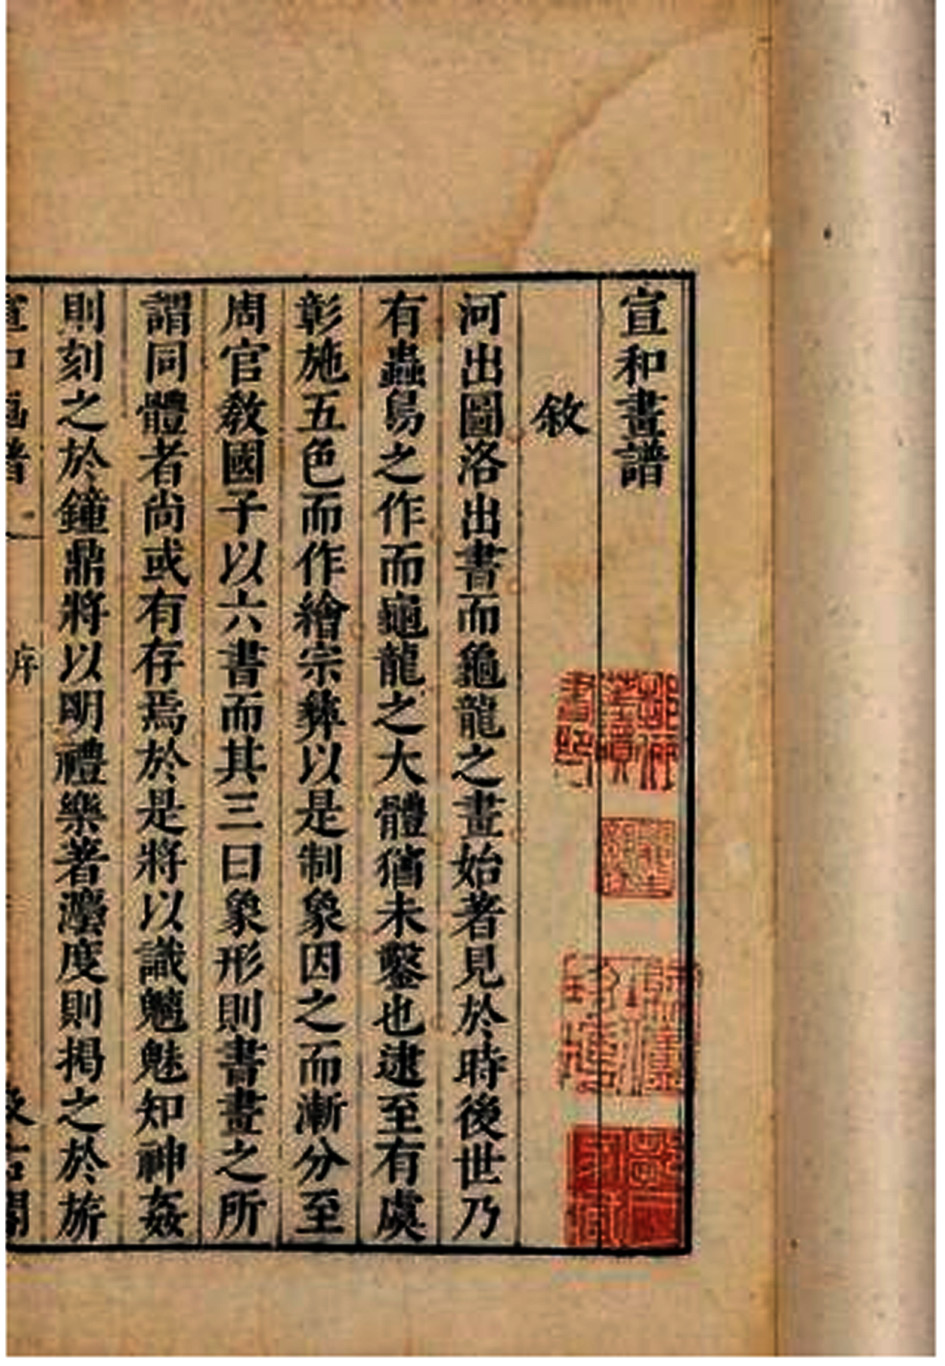 宣和畫譜
敘
河出圖洛出書而龜龍之畫始著見於時後世乃
有蟲鳥之作而龜龍之大體猶未鑿也逮至有虞
彰施五色而作繪宗彝以是制象因之而漸分至
周官敎國子以六書而其三曰象形則書畫之所
謂同體者尚或有存焉於是將以識魑魅知神姦
則刻之於鐘鼎將以明禮樂著灋度則揭之於旂
宣和畫譜 序